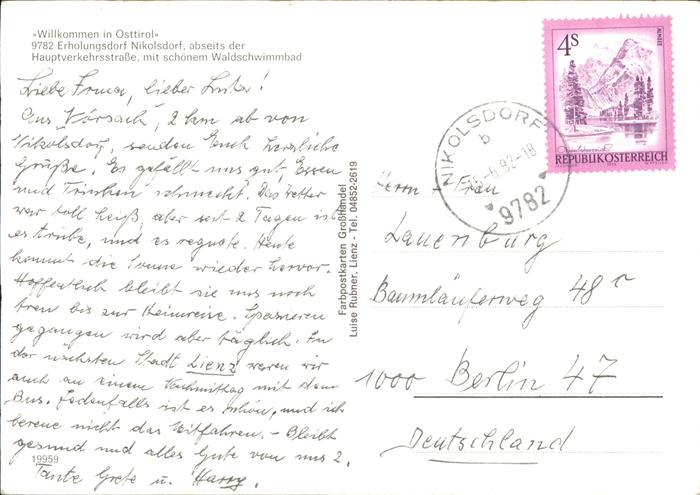 »Willkommen in Osttirol«
9782 Erholungsdorf Nikolsdorf, abseits der
Hauptverkehrsstraße, mit schönem Waldschwimmbad
Liebe Irma, lieber Lutz!
Aus "Nörsach", 2 km ab von
Nikolsdorf, senden Euch herzliche
Grüße. Es gefällt uns gut, Essen
und Trinken schmeckt. Das Wetter
war toll heiß, aber seit 2 Tagen ist
es trübe, und es regnete. Heute
kommt die Sonne wieder hervor.
Hoffentlich bleibt sie uns noch
treu bis zur Heimreise. Spazieren
gegangen wird aber täglich. In
der nächsten Stadt Lienz waren wir
auch an einem Vormittag mit dem
Bus. Jedenfalls ist es schön, und ich
bereue nicht das Mitfahren. - Bleibt
gesund und alles Gute von uns 2.
Tante Grete u. Harry.
19959
Farbpostkarten Großhandel
Luise Rubner, Lienz - Tel. 04852-2619
NIKOLSDORF
b
6.92-18
9782
4S
ALMSEE
REPUBLIK ÖSTERREICH
Herrn + Frau
Lauenburg
Baumläuferweg 48 c
1000 Berlin 47
Deutschland